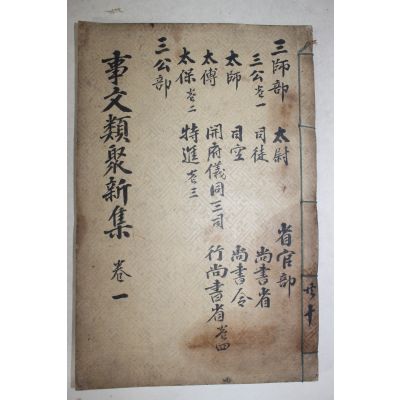 三師部 太尉 省官部
三公卷一 司徒 尚書省
太師 司空 尚書令
太傅 開府儀同三司 行尚書省卷四
太保卷二 特進卷三
三公部
事文類聚新集 卷一